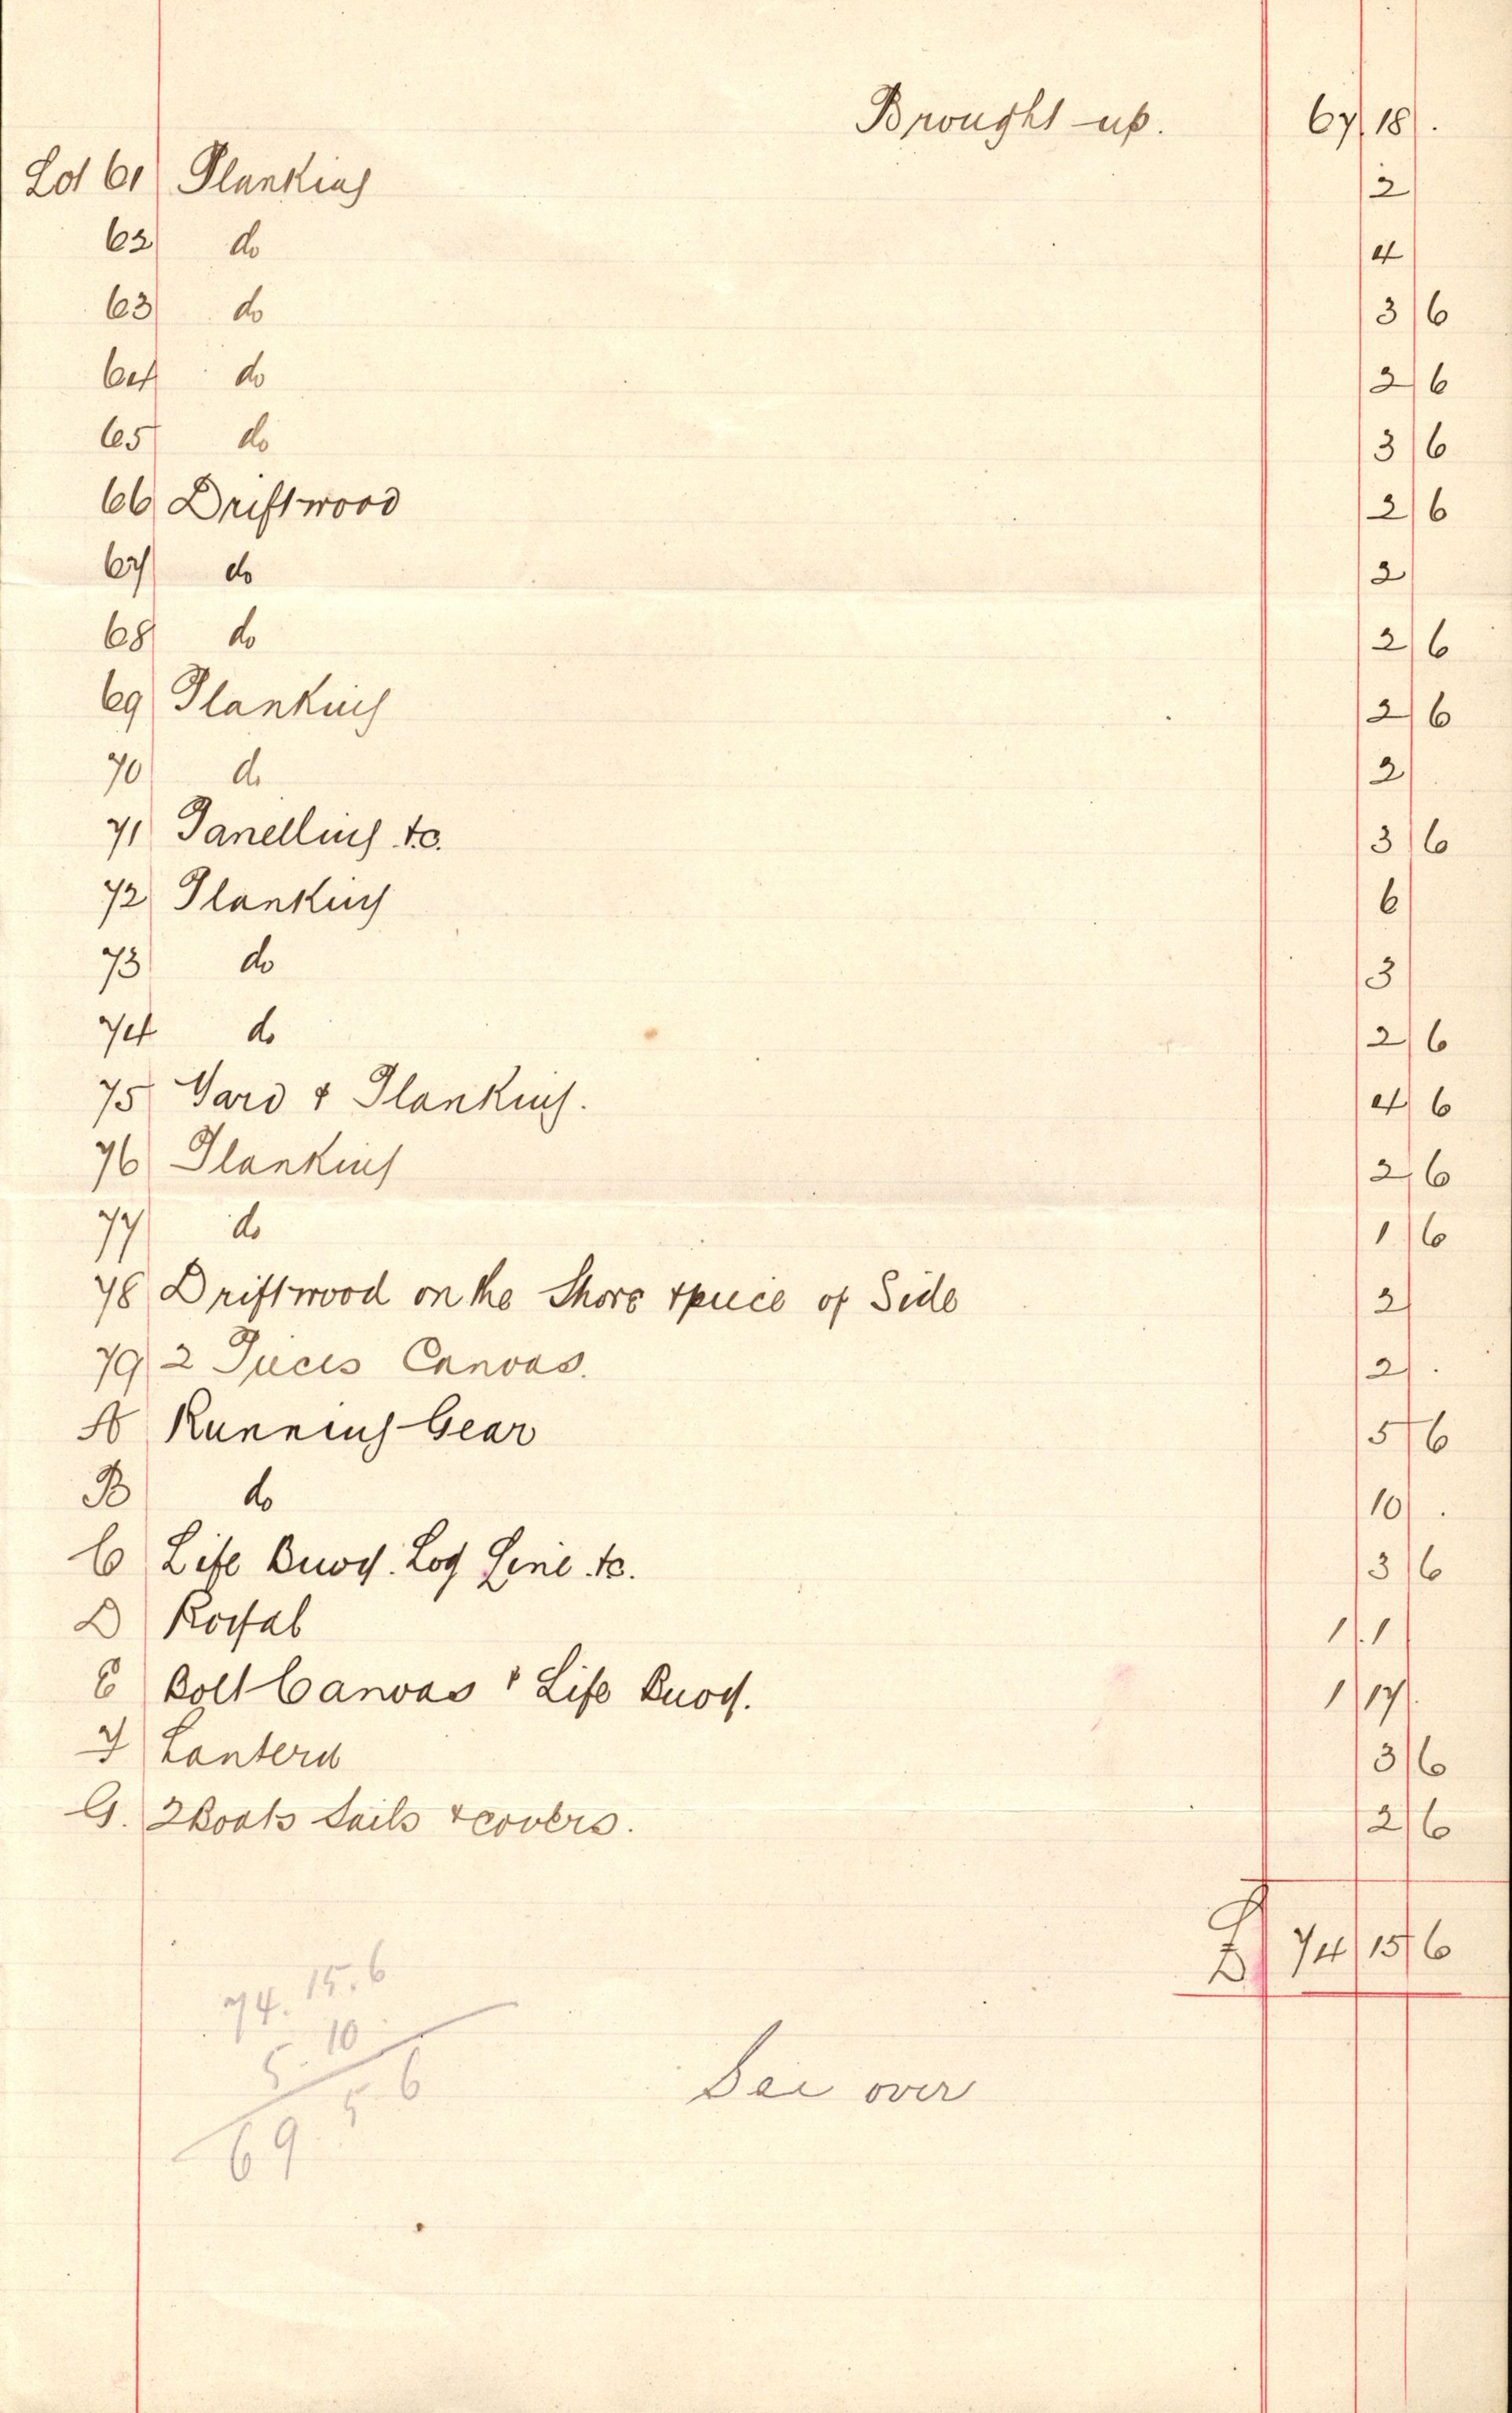 Brought up. 67/18/.
Lot 61 Planking 2/
62 do 4/
63 do 3/6
64 do 2/6
65 do 3/6
66 Driftwood 2/6
67 do 2/
68 do 2/6
69 Planking 2/6
70 do 2/
71 Panelling &c. 3/6
72 Planking 6/
73 do 3/
74 do 2/6
75 Yard & Planking. 4/6
76 Planking 2/6
77 do 1/6
78 Driftwood on the Shore & piece of Side 2/
79 2 Pieces Canvas. 2/.
A Running Gear 5/6
B do 10/.
C Life Buoy. Log Line &c. 3/6
D Royal 1/1/
E Bolt Canvas & Life Buoy. 1/17/.
F Lantern 3/6
G. 2 Boats Sails & covers. 2/6
£ 74/15/6
74. 15. 6
5. 10
69 5. 6
See over